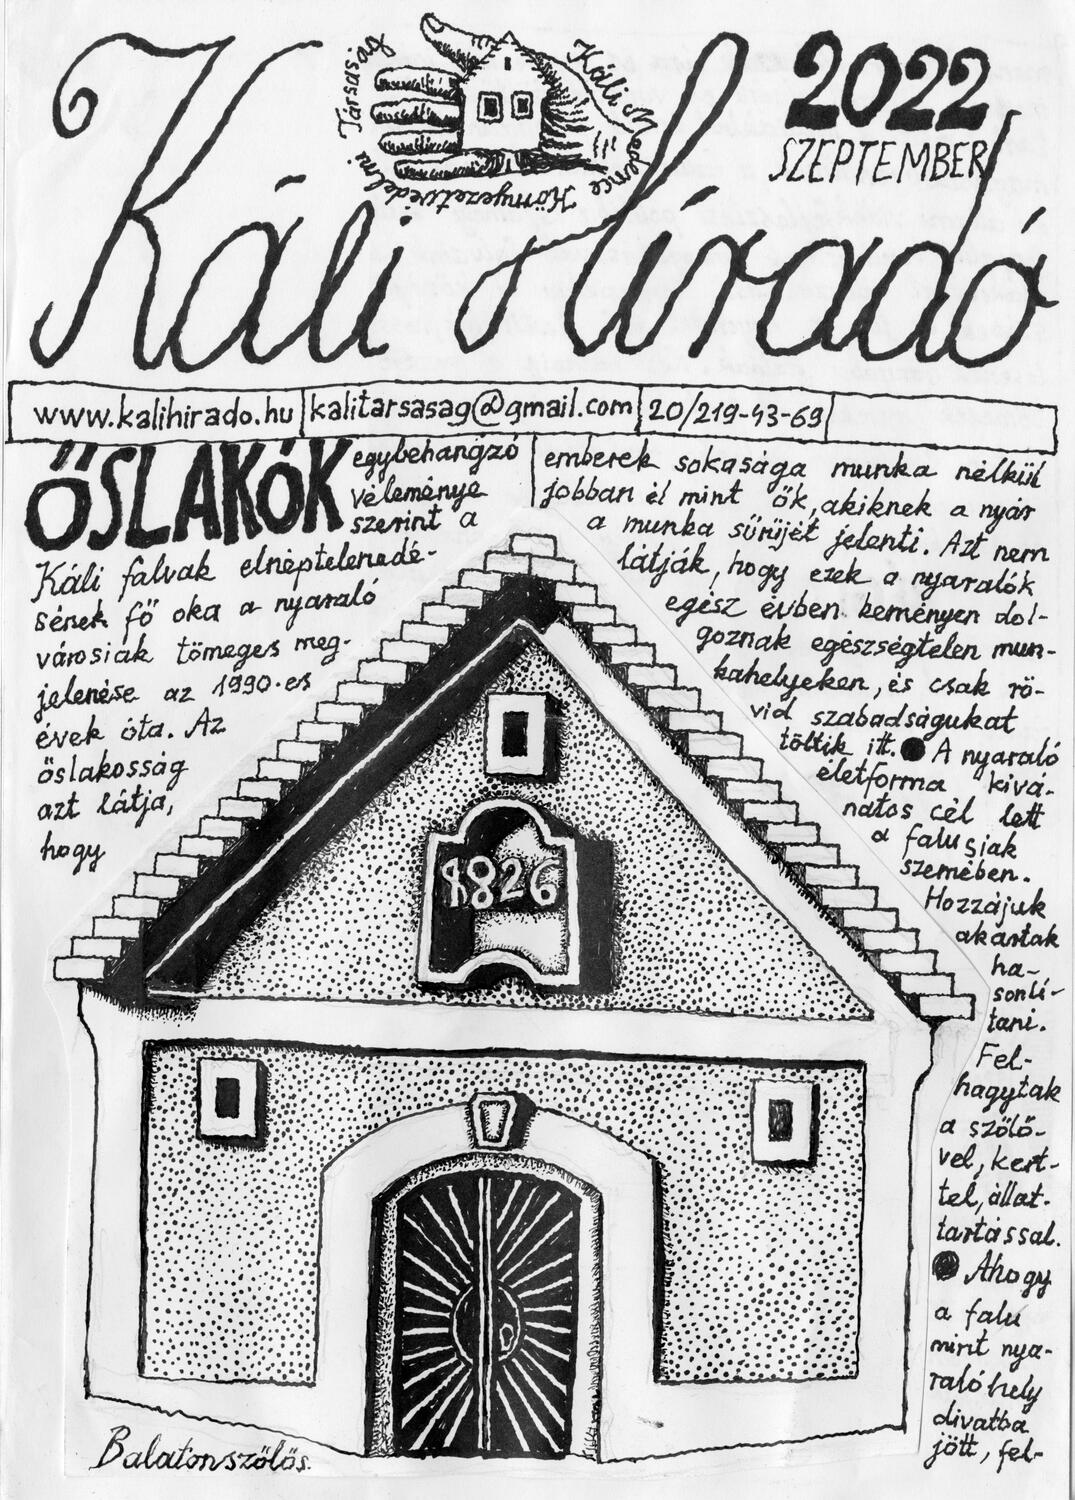 Káli Híradó
Káli Medence
Környezetvédelmi
Társaság
2022
SZEPTEMBER
www.kalihirado.hu
kalitarsasag@gmail.com
20/219-43-69
ŐSLAKÓK
egybehangzó
véleménye
szerint a
Káli falvak elnéptelenedé-
sének fő oka a nyaraló
városiak tömeges meg-
jelenése az 1990-es
évek óta. Az
őslakosság
azt látja,
hogy
emberek sokasága munka nélkül
jobban él mint ők, akiknek a nyár
a munka sűrűjét jelenti. Azt nem
látják, hogy ezek a nyaralók
egész évben keményen dol-
goznak egészségtelen mun-
kahelyeken, és csak rö-
vid szabadságukat
töltik itt. ● A nyaraló
életforma kívá-
natos cél lett
a falusiak
szemében.
Hozzájuk
akartak
ha-
sonlí-
tani.
Fel-
hagytak
a szőlő-
vel, kert-
tel, állat-
tartással.
● Ahogy
a falu
mint nya-
ralóhely
divatba
jött, fel-
1826
Balatonszőlős